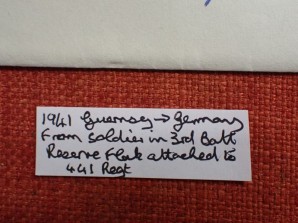 1941 Guernsey → Germany
from soldier in 3rd Batt
Reserve Flak attached to
441 Regt